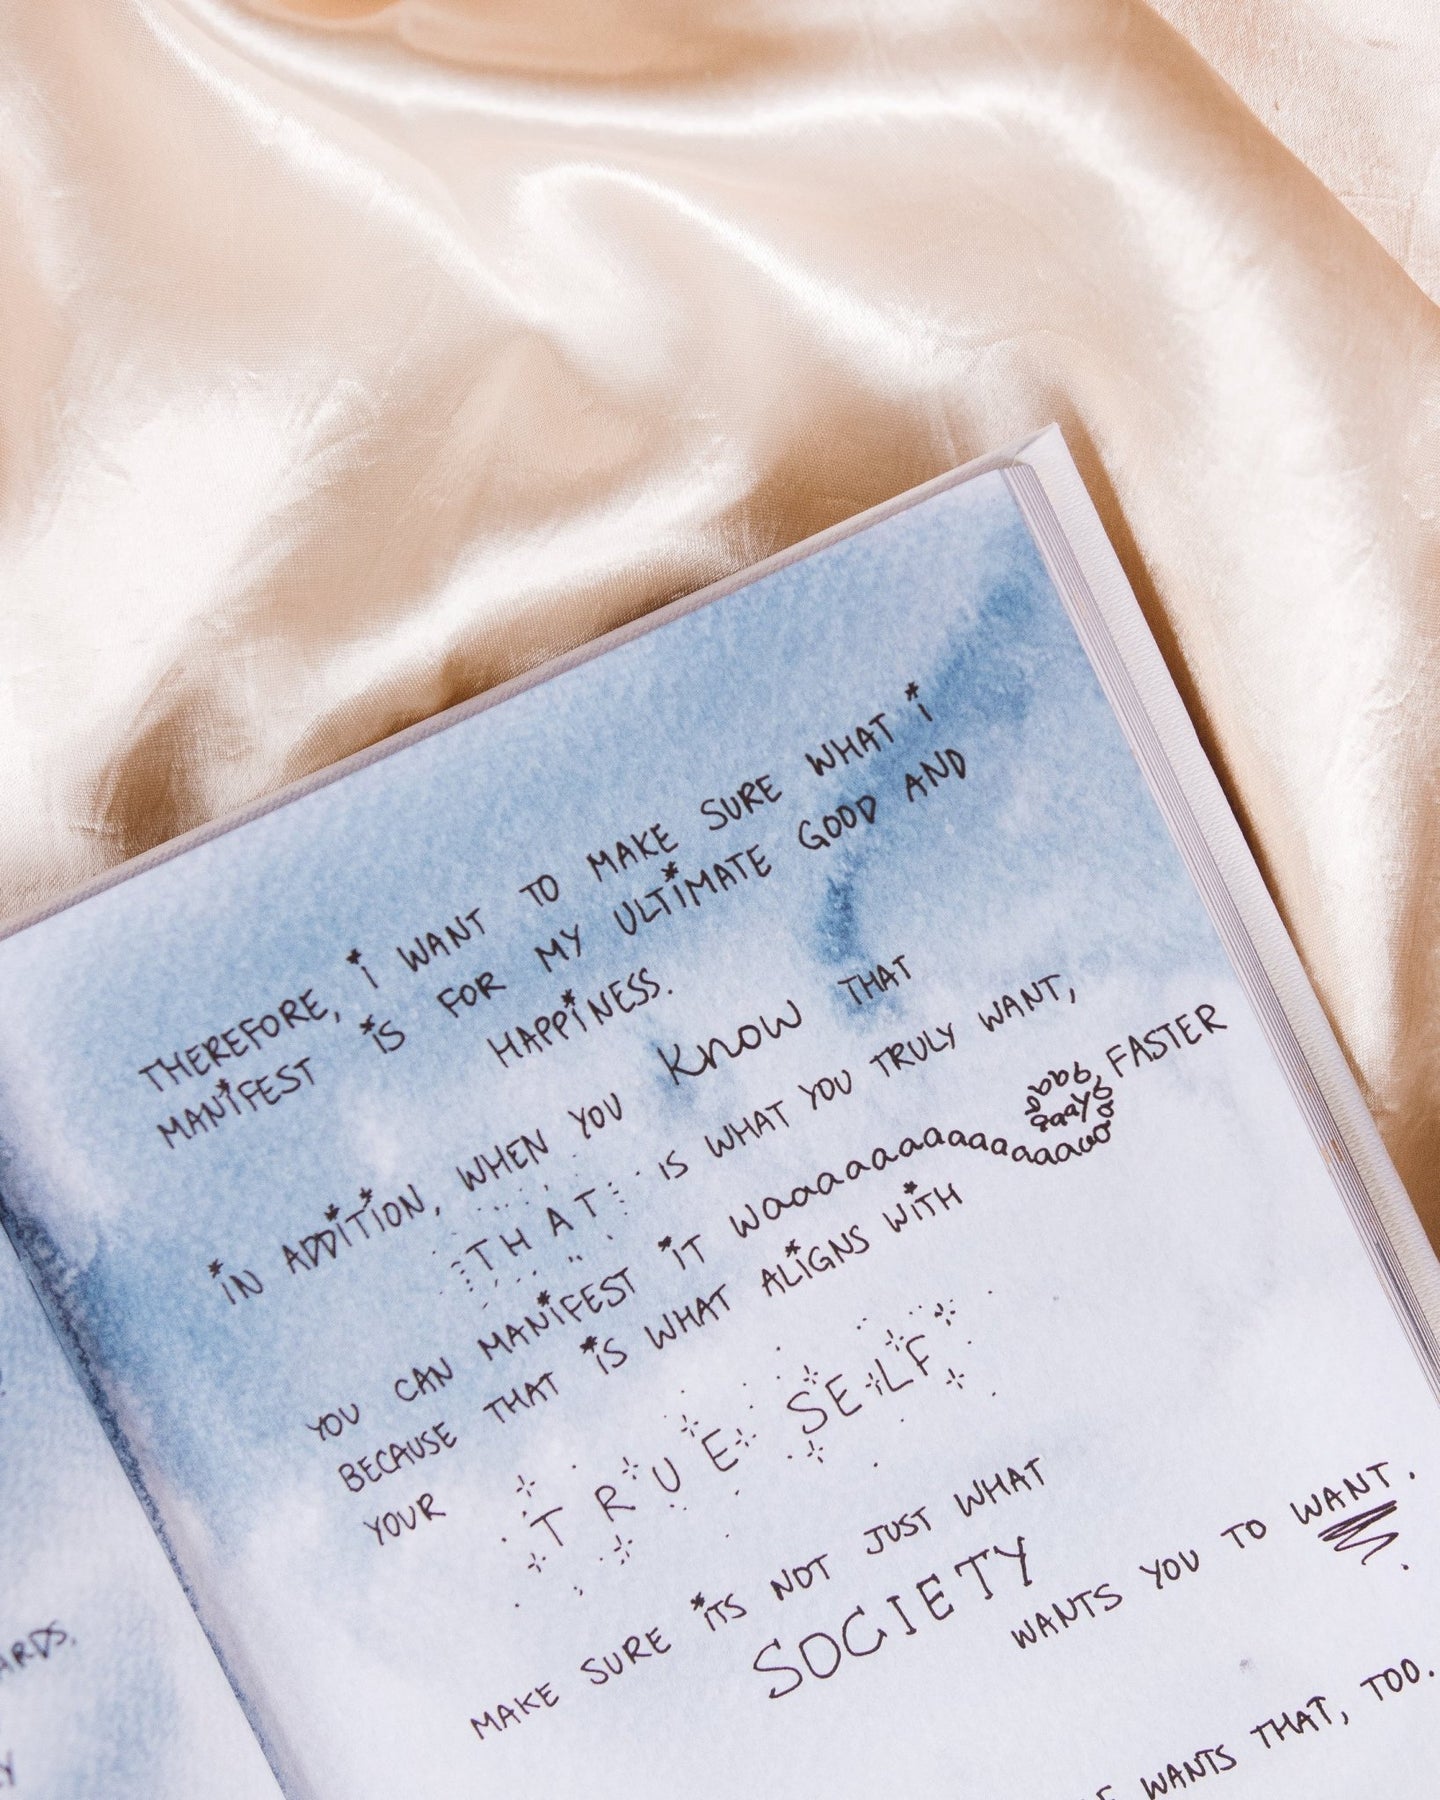 THEREFORE, i WANT TO MAKE SURE WHAT i
MANiFEST iS FOR MY ULTiMATE GOOD AND
HAPPiNESS.
iN ADDiTiON, WHEN YOU Know THAT
THAT IS WHAT YOU TRULY WANT,
YOU CAN MANiFEST iT Waaaaaaaaaaaaaaaaaaaaaaaaaaaaay FASTER
BECAUSE THAT iS WHAT ALiGNS WiTH
YOUR TRUE SELF
MAKE SURE iTS NOT JUST WHAT
SOCIETY
WANTS YOU TO WANT.
WANTS THAT, TOO.